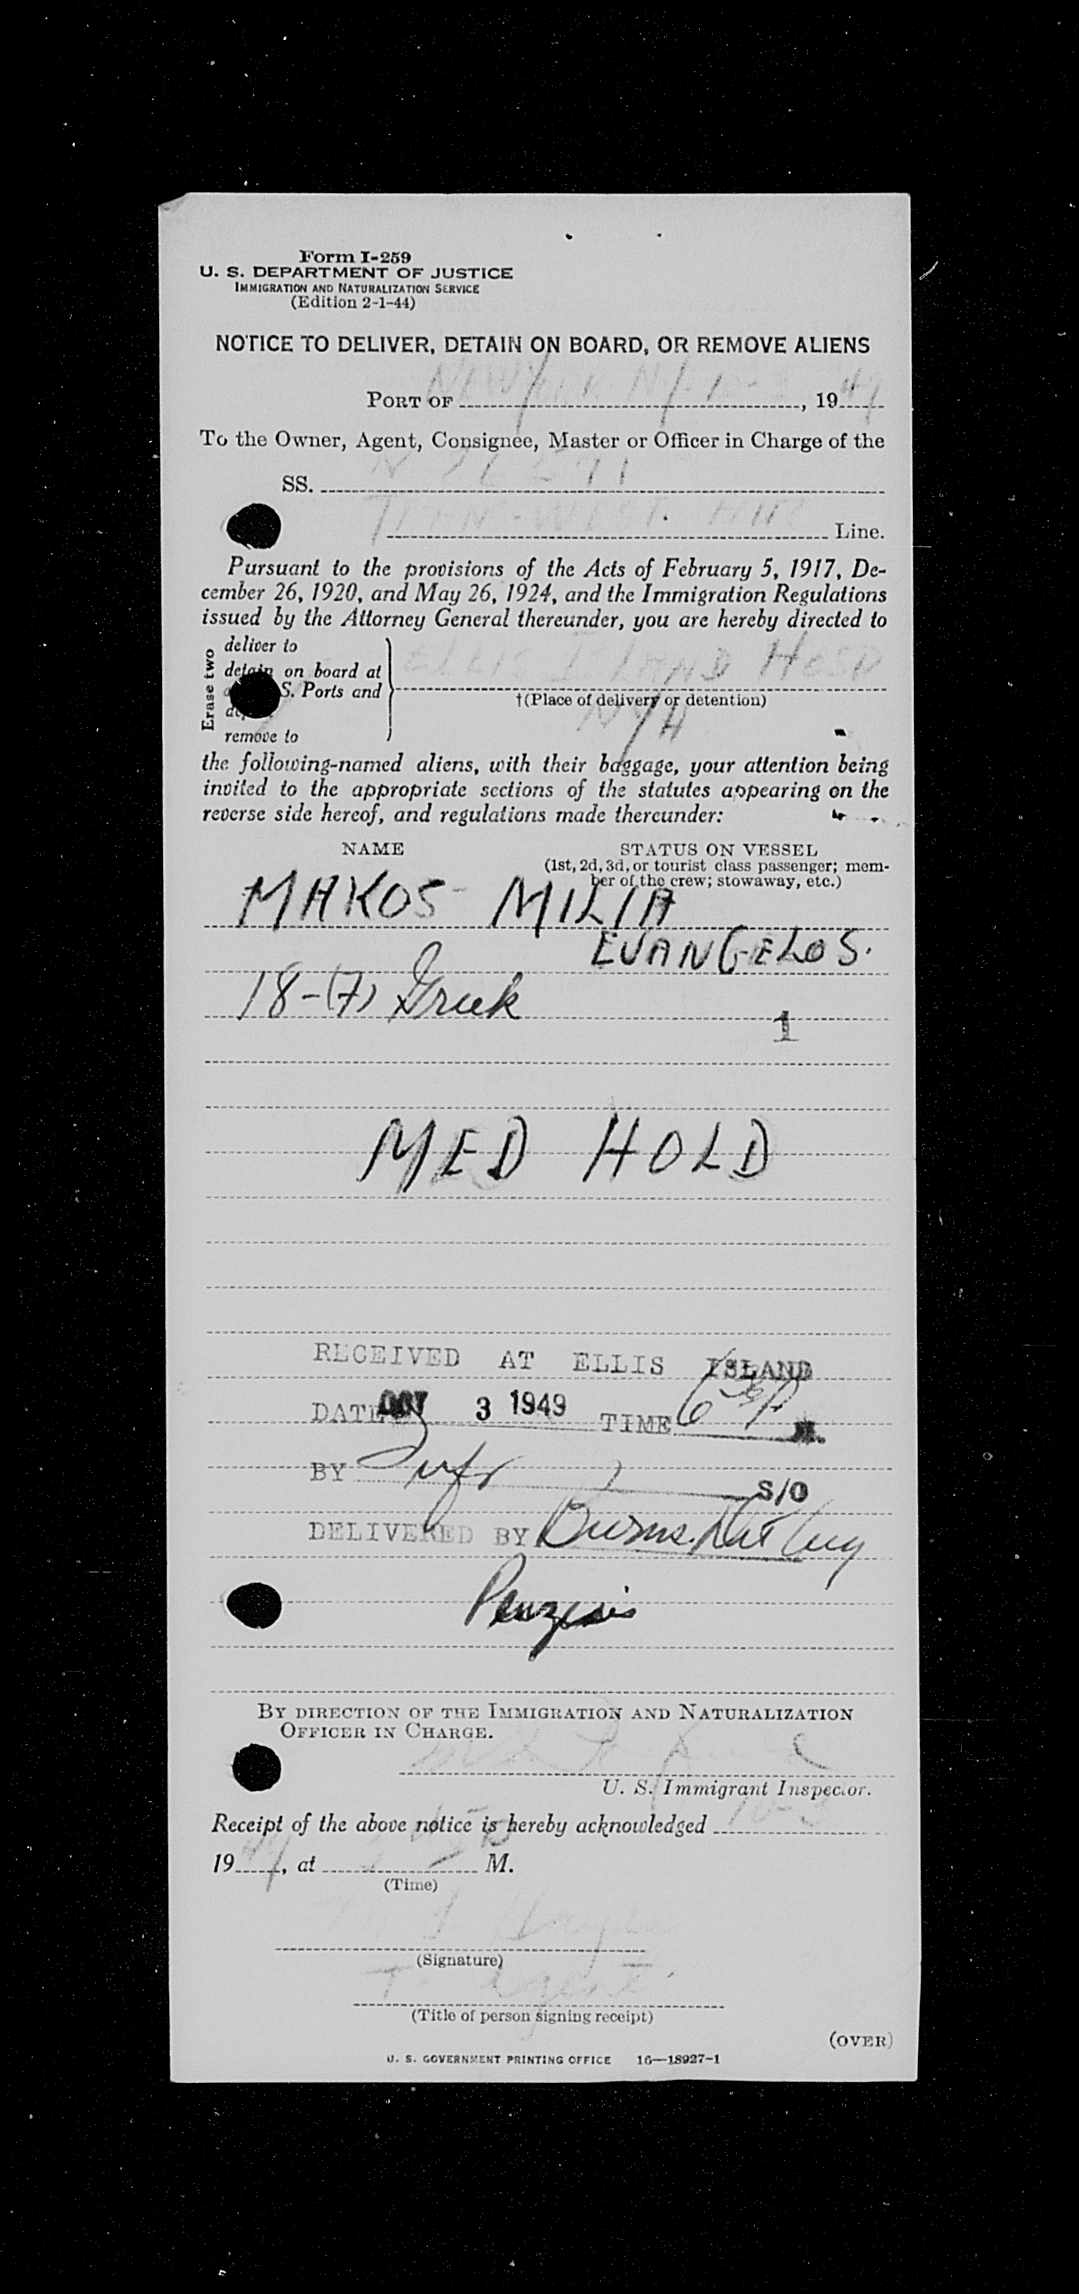 Form I-259
U. S. DEPARTMENT OF JUSTICE
IMMIGRATION AND NATURALIZATION SERVICE
(Edition 2-1-44)
NOTICE TO DELIVER, DETAIN ON BOARD, OR REMOVE ALIENS
PORT OF New York NY 10-3, 1949
To the Owner, Agent, Consignee, Master or Officer in Charge of the
SS. N
Line.
Pursuant to the provisions of the Acts of February 5, 1917, De-
cember 26, 1920, and May 26, 1924, and the Immigration Regulations
issued by the Attorney General thereunder, you are hereby directed to
Erase two
deliver to
detain on board at
S. Ports and
remove to
ELLIS ISLAND HOSP
†(Place of delivery or detention)
NYH
the following-named aliens, with their baggage, your attention being
invited to the appropriate sections of the statutes appearing on the
reverse side hereof, and regulations made thereunder:
NAME STATUS ON VESSEL
(1st, 2d, 3d, or tourist class passenger; mem-
ber of the crew; stowaway, etc.)
MAKOS - MILIA
EVANGELOS.
18-(7) Greek
1
MED HOLD
RECEIVED AT ELLIS ISLAND
DATE OCT 3 1949 TIME M.
BY S/O
DELIVERED BY Burns
BY DIRECTION OF THE IMMIGRATION AND NATURALIZATION
OFFICER IN CHARGE.
U. S. Immigrant Inspector.
Receipt of the above notice is hereby acknowledged 10-3
1949, at M.
(Time)
(Signature)
Agent
(Title of person signing receipt)
(OVER)
U. S. GOVERNMENT PRINTING OFFICE 16—18927-1